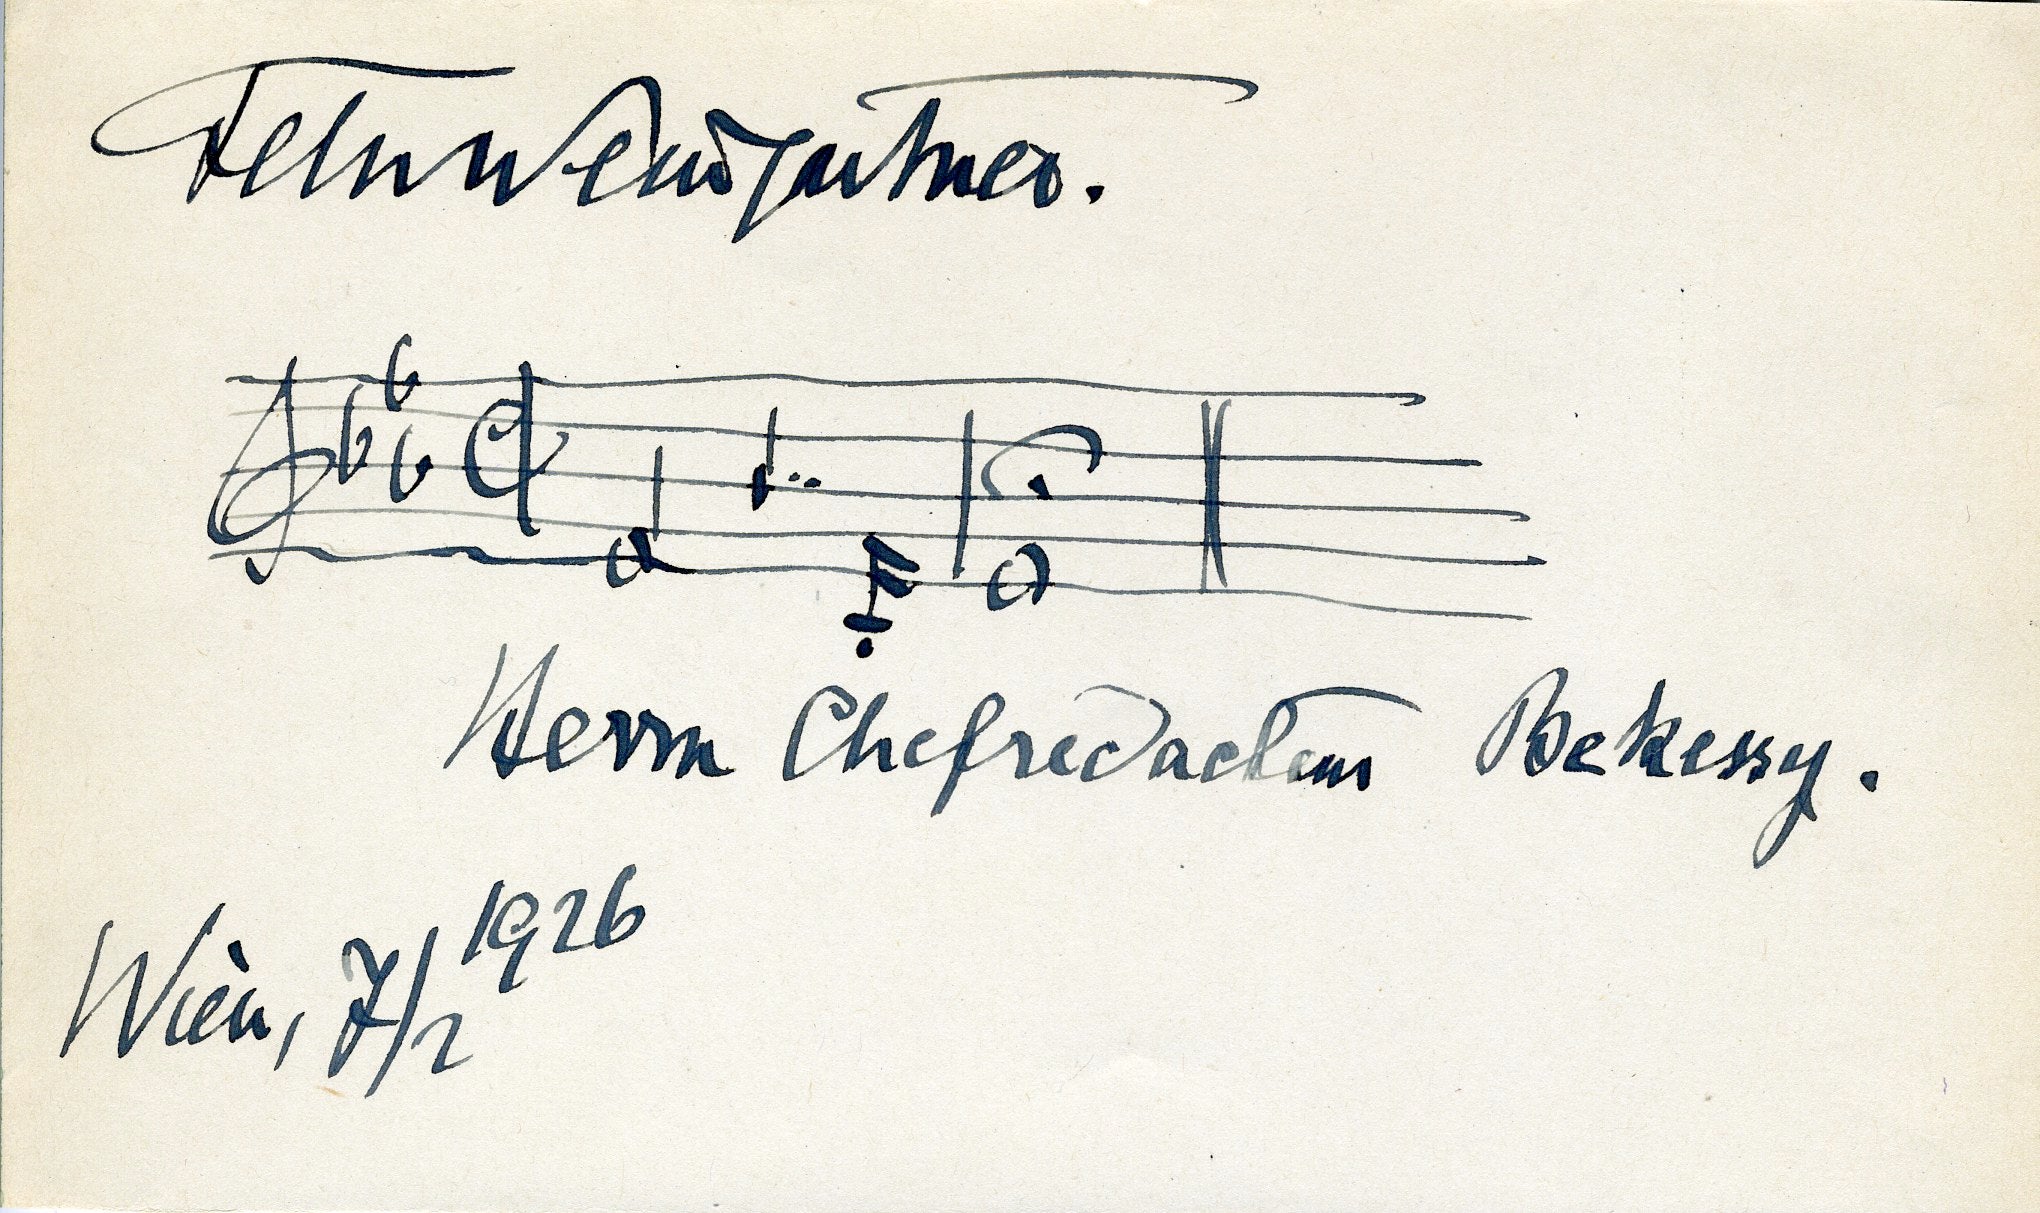 Felix Weingartner.
Herrn Chefredacteur Bekessy.
Wien, 7/2 1926